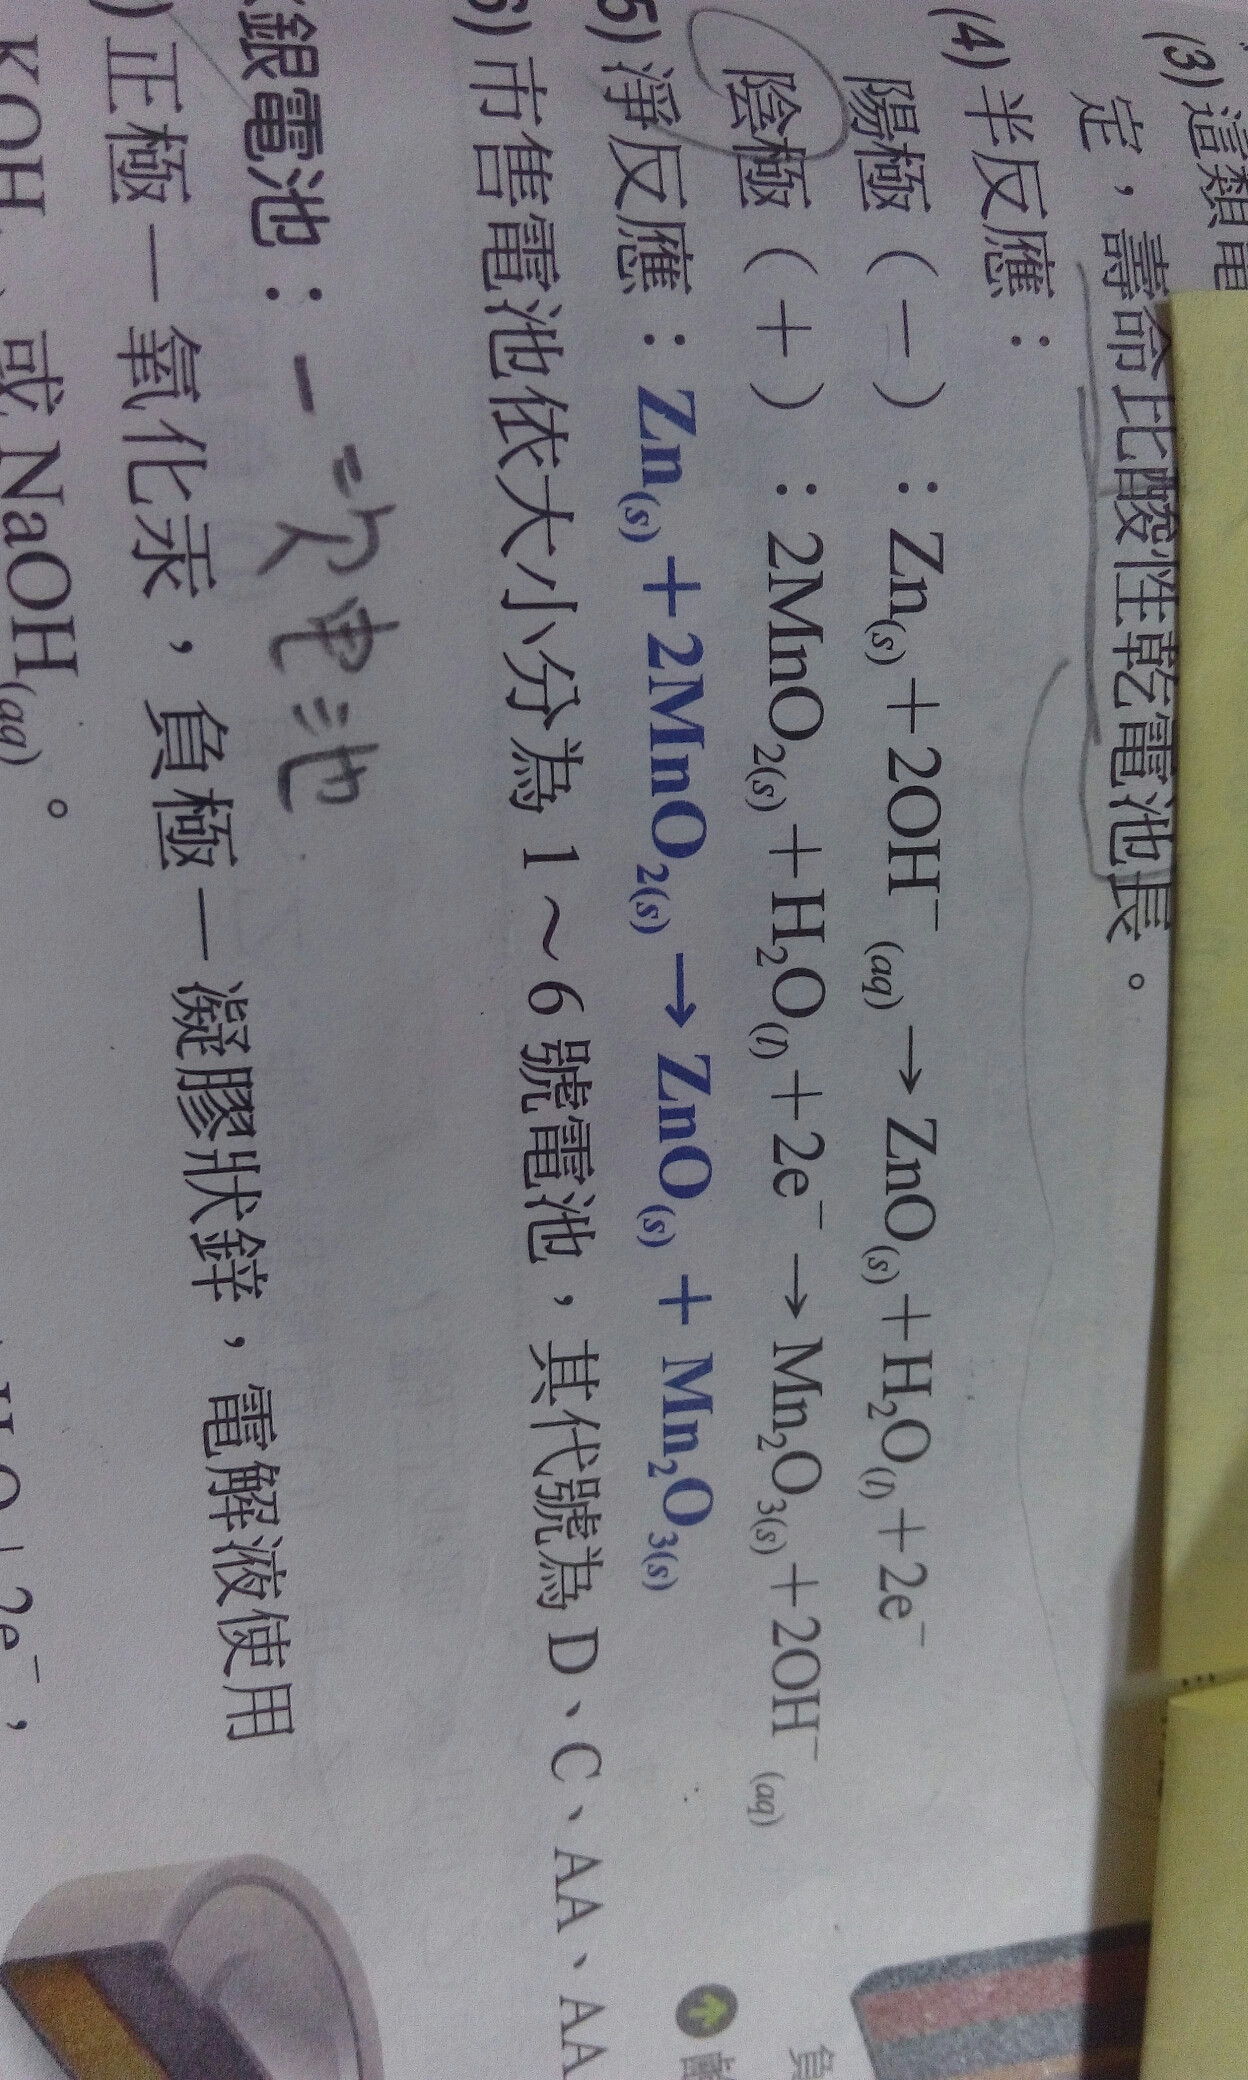 (3) 這類電
定，壽命比酸性乾電池長。
(4) 半反應：
陽極（－）：Zn(s)＋2OH⁻(aq)→ZnO(s)＋H₂O(l)＋2e⁻
陰極（＋）：2MnO₂(s)＋H₂O(l)＋2e⁻→Mn₂O₃(s)＋2OH⁻(aq)
5) 淨反應：Zn(s)＋2MnO₂(s)→ZnO(s)＋Mn₂O₃(s)
6) 市售電池依大小分為 1～6 號電池，其代號為 D、C、AA、AA
銀電池：一次电池
) 正極—氧化汞，負極—凝膠狀鋅，電解液使用
KOH 或 NaOH(aq)。
2e⁻，
負